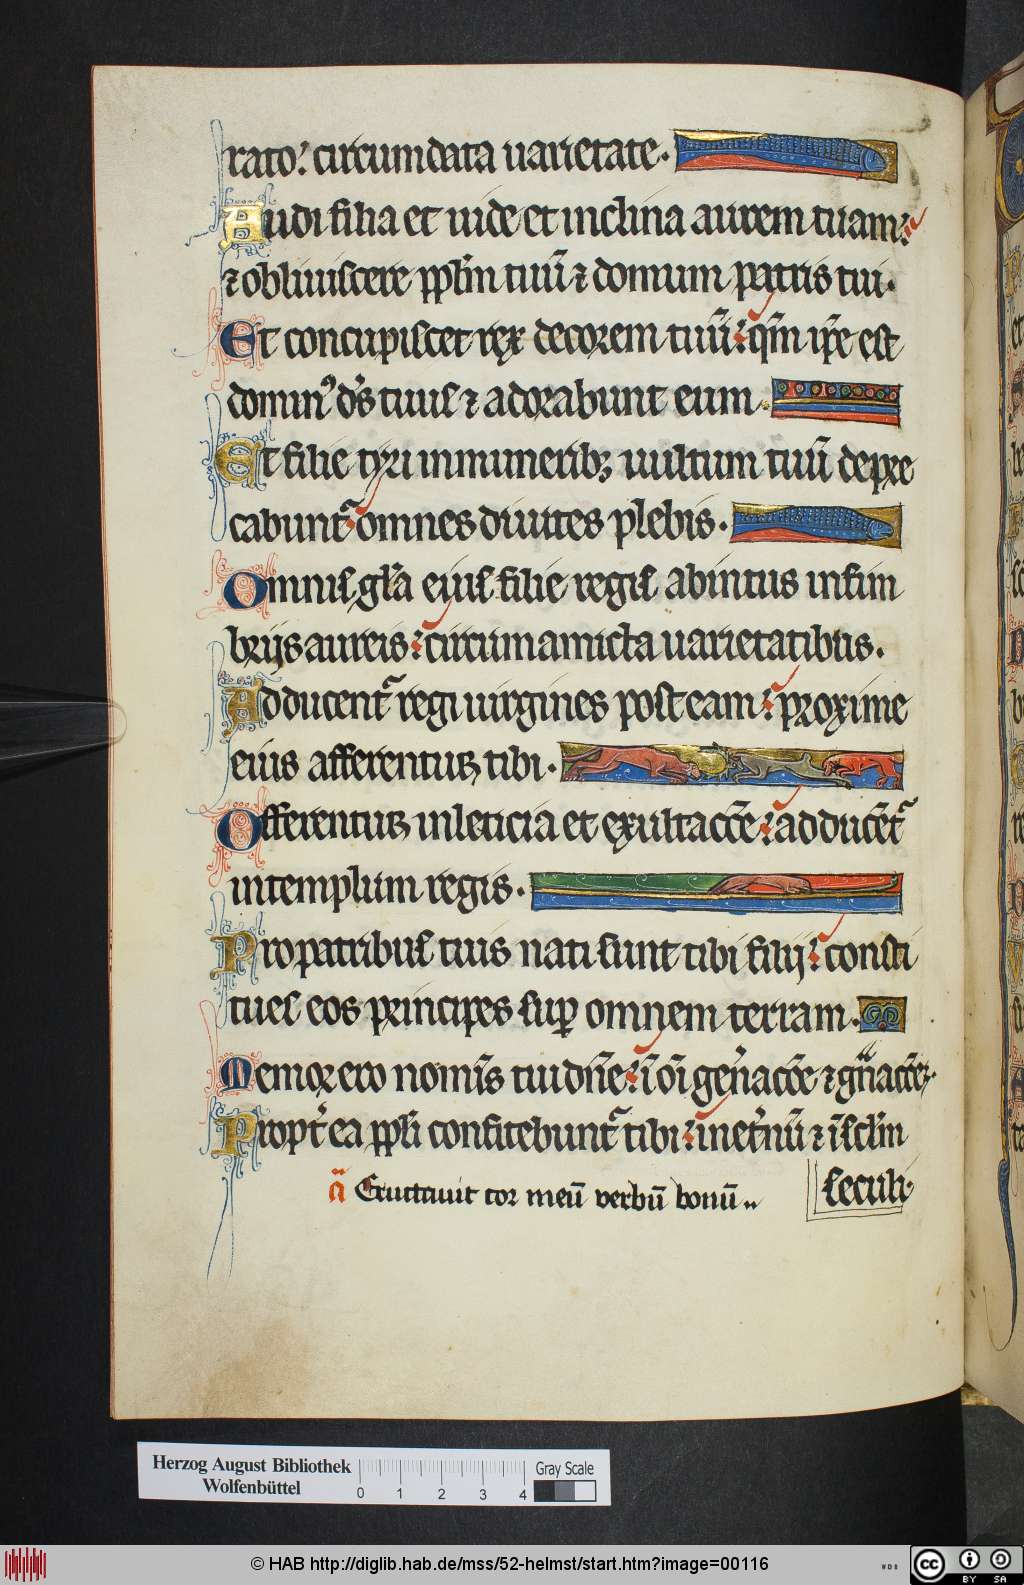 rato: circumdata uarietate.
Audi filia et uide et inclina aurem tuam:
⁊ obliuiscere pplm̄ tuū ⁊ domum patris tui.
Et concupiscet rex decorem tuū: qm̄ ip̄e est
dominꝰ ds̄ tuus ⁊ adorabunt eum.
Et filie tyri in muneribꝫ uultum tuū depre
cabunt᷑: omnes diuites plebis.
Omnis gl̄a eius filie regis ab intus in fim
brijs aureis: circumamicta uarietatibus.
Adducent᷑ regi uirgines post eam: proxime
eius afferentur tibi.
Offerentur in leticia et exultacc̄e: adducēt᷑
in templum regis.
Pro patribus tuis nati sunt tibi filij: consti
tues eos principes suꝑ omnem terram.
Memor ero nomīs tui dn̄e: ī oī gen̄acc̄e ⁊ gn̄acc̄em.
Propt̄ea ppl̄i confitebunt᷑ tibi: in et̄nū ⁊ ī sclm̄
seculi.
a᷑ Eructauit cor meū verbū bonū..
Herzog August Bibliothek
Wolfenbüttel
0 1 2 3 4
Gray Scale
© HAB http://diglib.hab.de/mss/52-helmst/start.htm?image=00116
WDB
cc BY SA